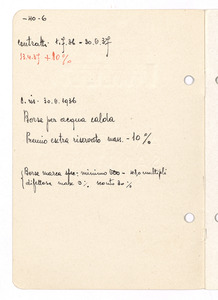 -40-6
contratto 1.7.36 - 30.6.37
13.4.37 +20%
L. ris. 30.6.1936
Borse per acqua calda
Premio extra riservato mass. -10%
Borse marca : minimo 200 - multipli
difettose max 3% sconto 30%